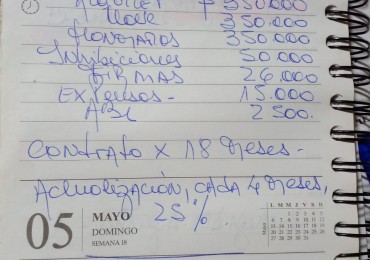 Alquiler $ 350.000
Llave 350.000
Honorarios 350.000
Inhibiciones 50.000
FIRMAS 26.000
EXpensas - 15.000
ABL 2500.
CONTRATO X 18 Meses -
Actualización, cada 4 meses,
25 %
05 MAYO
DOMINGO
SEMANA 18
Mayo
L M M J V S D
1 2 3 4 5
6 7 8 9 10 11 12
13 14 15 16 17 18 19
20 21 22 23 24 25 26
27 28 29 30 31